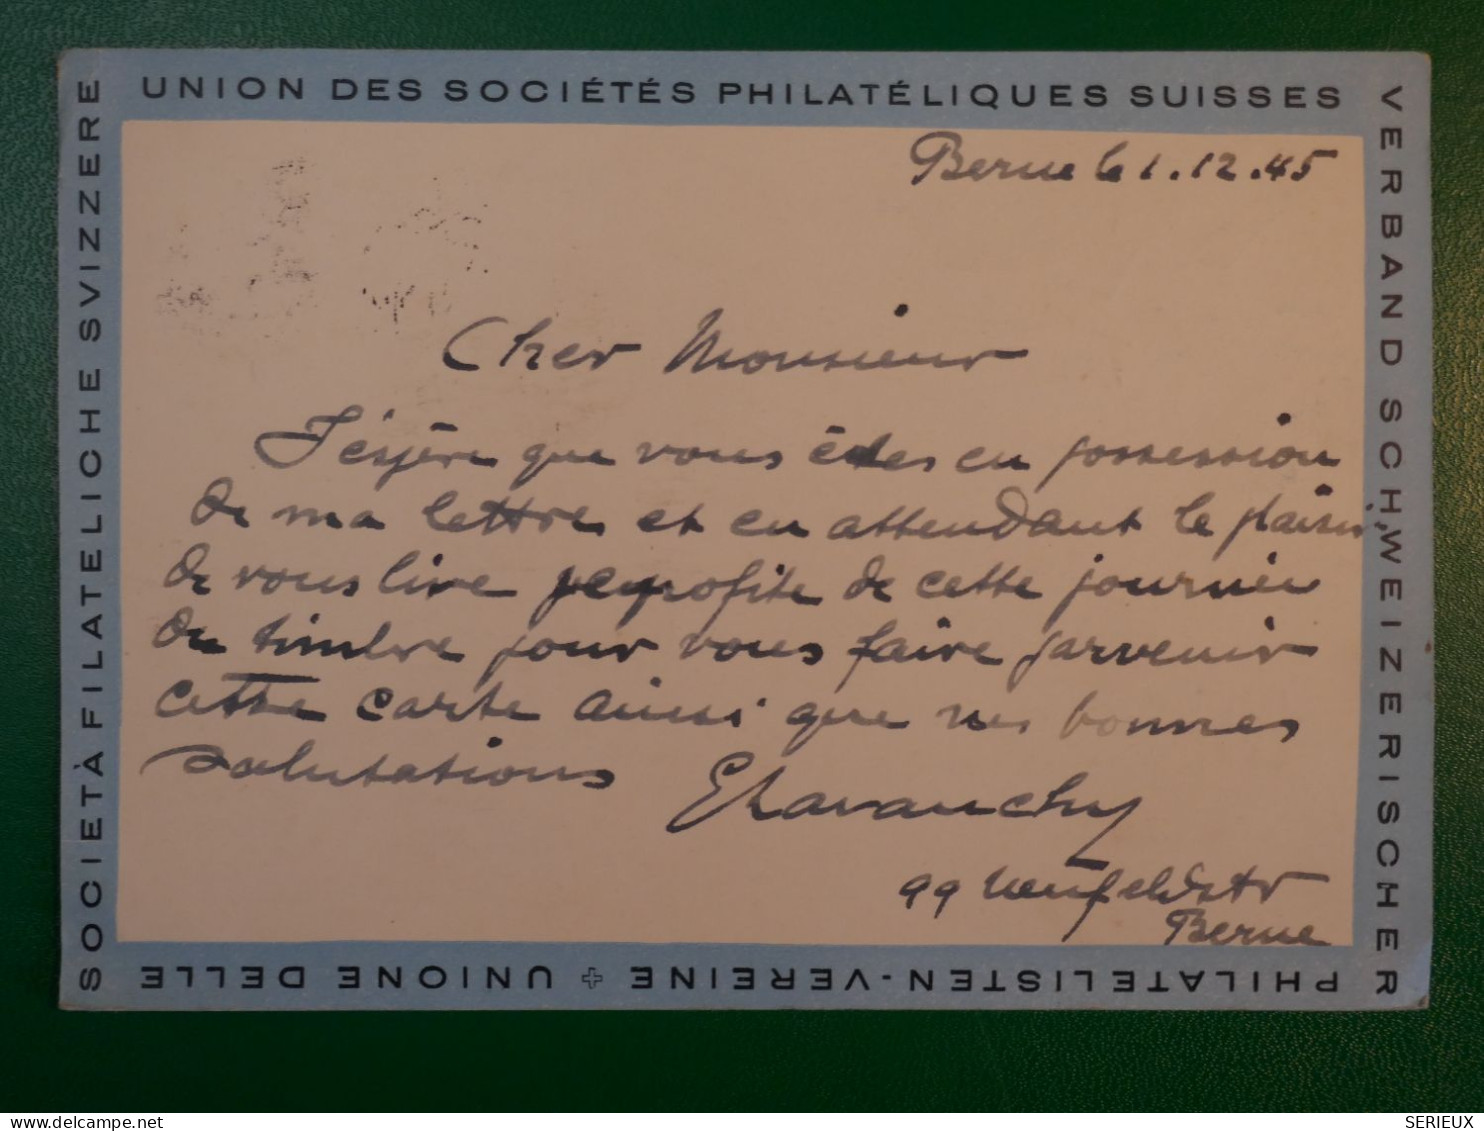 UNION DES SOCIÉTÉS PHILATÉLIQUES SUISSES
VERBAND SCHWEIZERISCHER
PHILATELISTEN-VEREINE + UNIONE DELLE
SOCIETÀ FILATELICHE SVIZZERE
Berne le 1.12.45
Cher Monsieur
J'espère que vous êtes en possession
de ma lettre et en attendant le plaisir
de vous lire je profite de cette journée
du timbre pour vous faire parvenir
cette carte ainsi que mes bonnes
salutations
99 Neufeldstr
Berne
SERIEUX